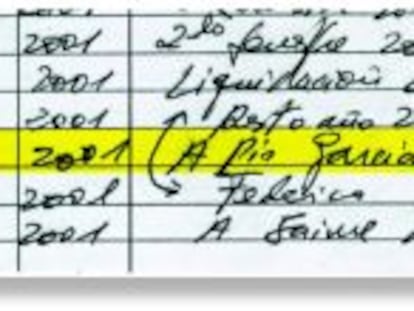 2001 2do
2001 Liquidación
2001 Resto año 2
2001 A Pío García
2001 Federico
2001 A Jaime